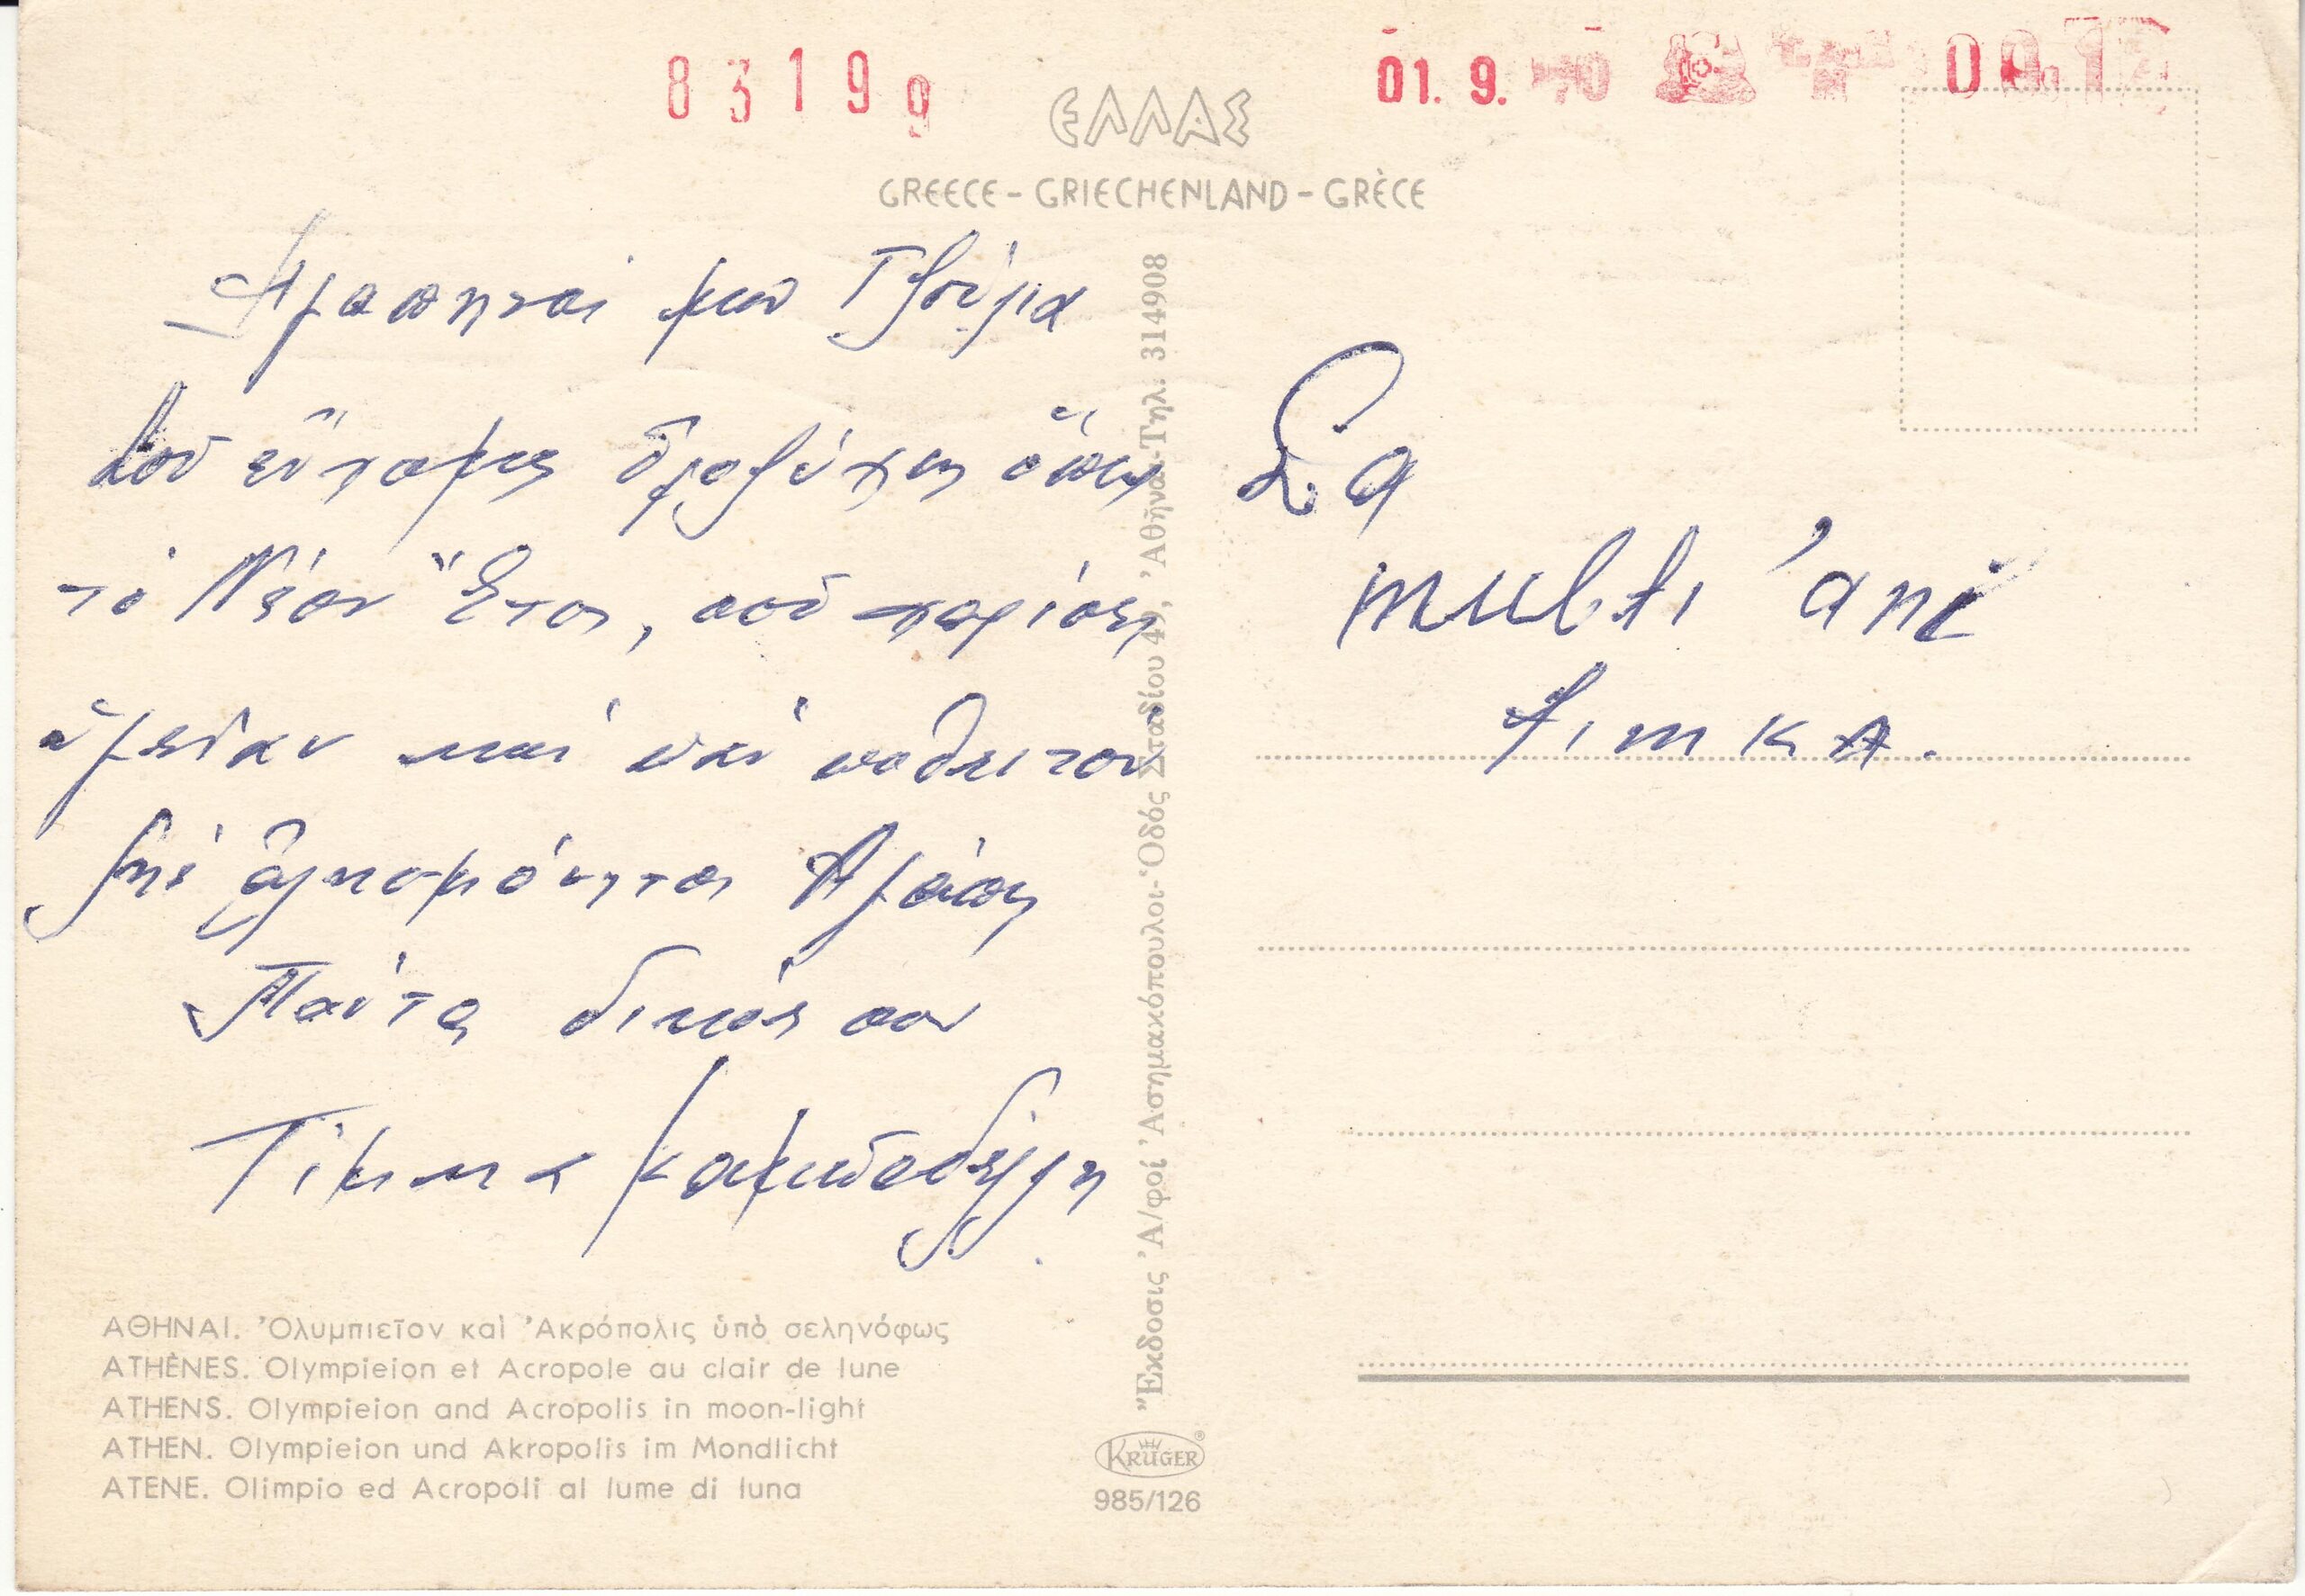 83199
01. 9. 70
ΕΛΛΑΣ
GREECE - GRIECHENLAND - GRÈCE
Ἀγαπηταί μου Τζούλια
Σοῦ εὔχομαι ὅπως
τό Νέον Ἔτος, σοῦ χαρίσει
ὑγείαν καί
Ἀγάπη
Πάντα δικός σου
Τίμκα
La
multi 'ani
Timka.
"Εκδοσις 'Α/φοί 'Ασημακόπουλοι-'Οδός Σταδίου 49, 'Αθῆναι-Τηλ. 314908
ΑΘΗΝΑΙ. 'Ολυμπιεῖον καὶ 'Ακρόπολις ὑπὸ σεληνόφως
ATHÈNES. Olympieion et Acropole au clair de lune
ATHENS. Olympieion and Acropolis in moon-light
ATHEN. Olympieion und Akropolis im Mondlicht
ATENE. Olimpio ed Acropoli al lume di luna
KRÜGER
985/126